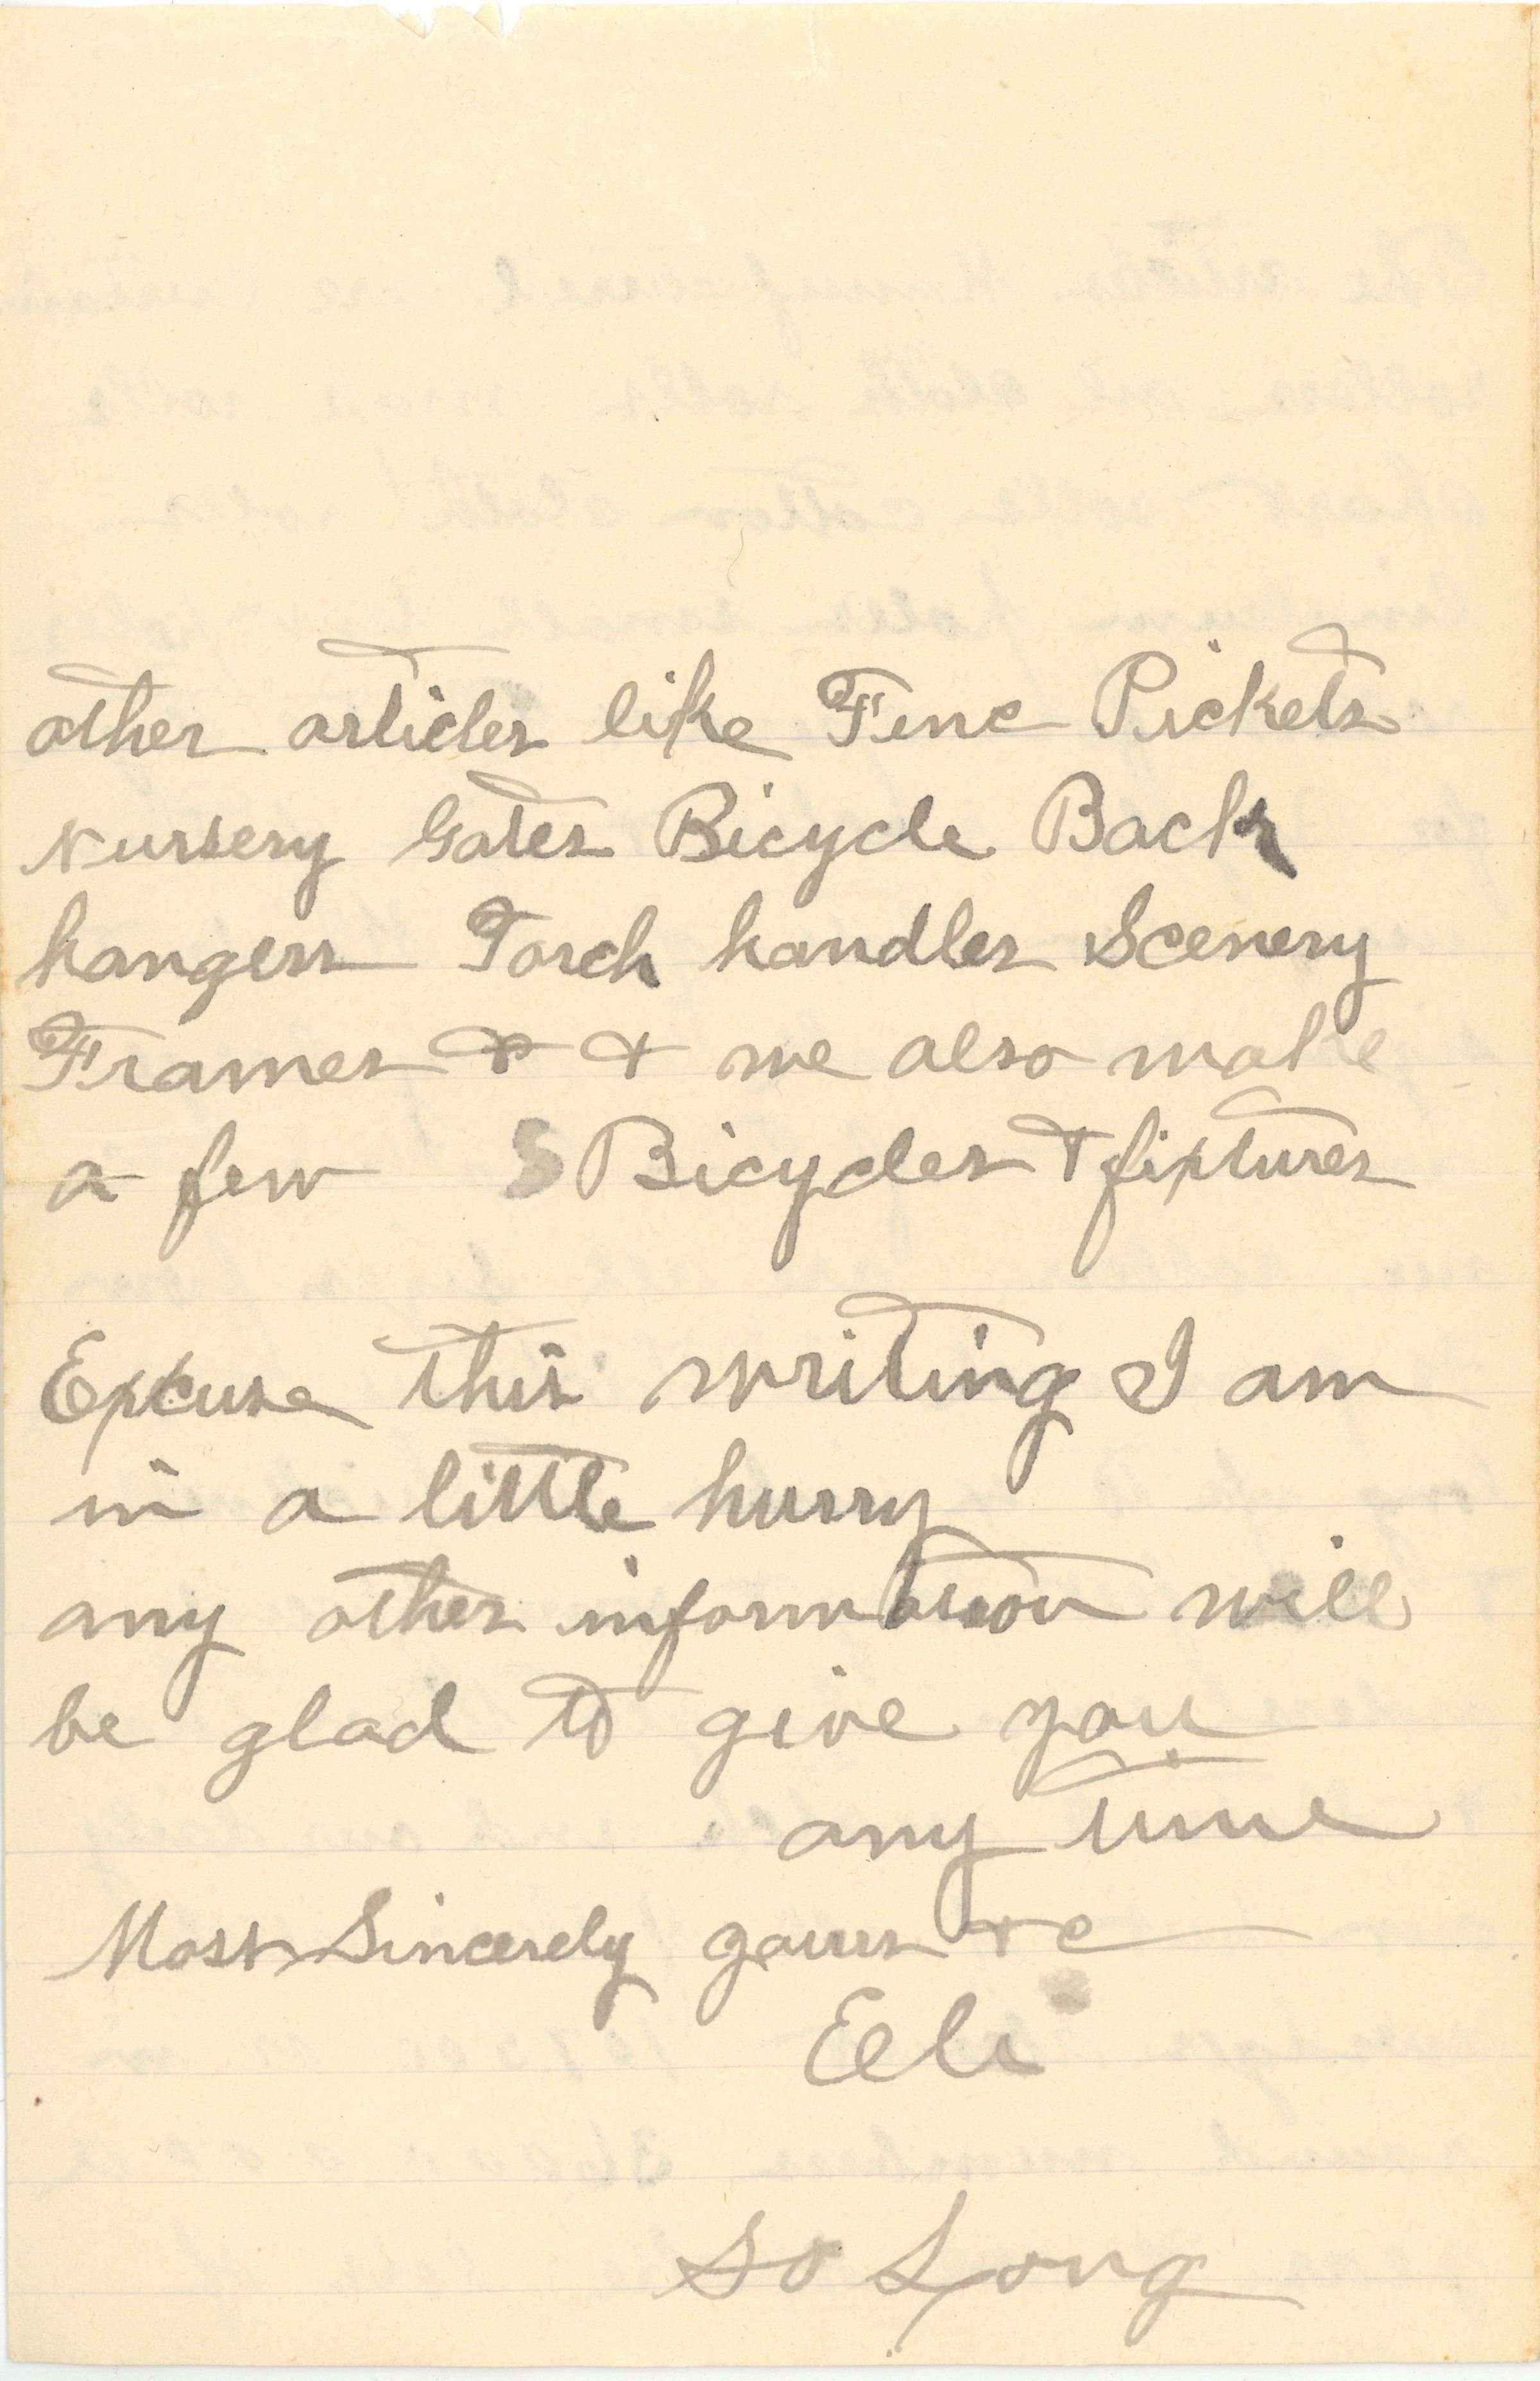 other articles like Fenc Pickets
Nursery Gates Bicycle Back
hangers Torch handles Scenery
Frames & & we also make
a few Bicycles & fixtures
Excuse this writing I am
in a little hurry
any other information will
be glad to give you
any time
Most Sincerely yours & c
Eli
So Long